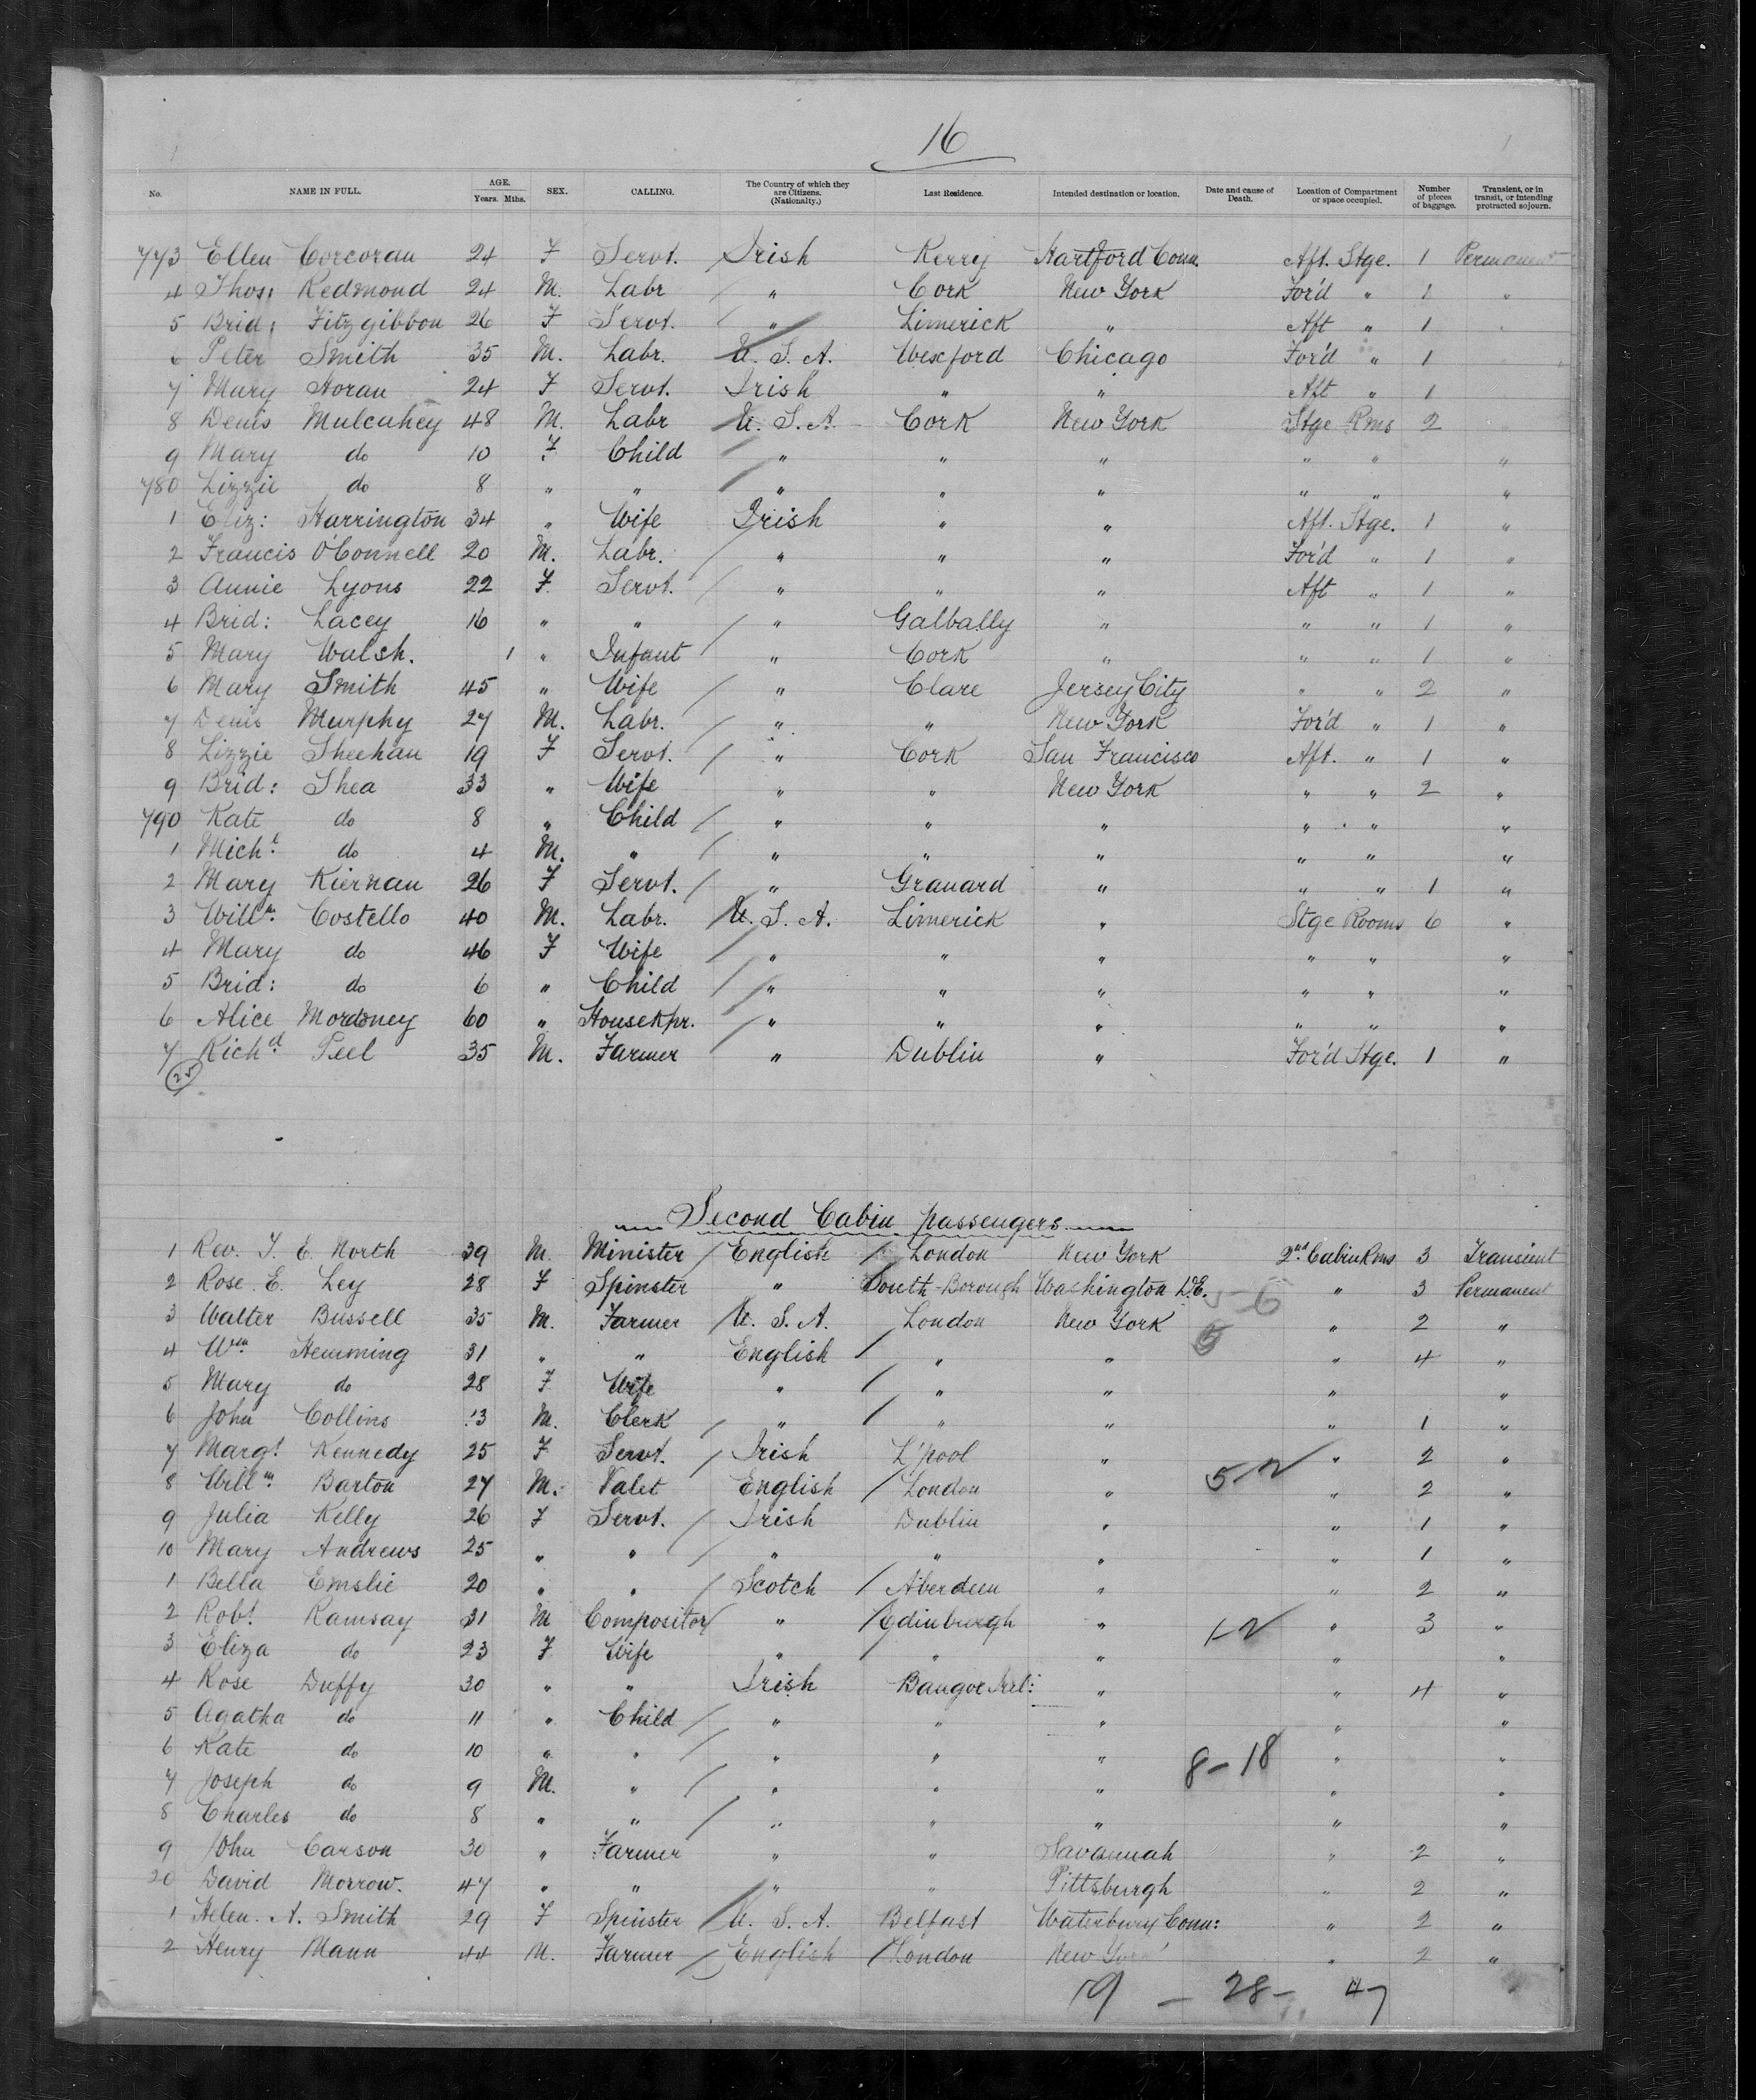 16
No. NAME IN FULL. AGE. Years. Mths. SEX. CALLING. The Country of which they are Citizens. (Nationalty.) Last Residence. Intended destination or location. Date and cause of Death. Location of Compartment or space occupied. Number of pieces of baggage. Transient, or in transit, or intending protracted sojourn.
773 Ellen Corcoran 24 F Servt. Irish Kerry Hartford Conn. Aft. Stge. 1 Permanent
4 Thos: Redmond 24 M. Labr " Cork New York For'd " 1 "
5 Brid: Fitzgibbon 26 F Servt. " Limerick " Aft " 1 "
6 Peter Smith 35 M. Labr. U. S. A. Wexford Chicago For'd " 1
7 Mary Horan 24 F Servt. Irish " " Aft " 1
8 Denis Mulcahey 48 M. Labr U. S. A. Cork New York Stge Rms 2
9 Mary do 10 F Child " " " " " "
780 Lizzie do 8 " " " " " " " "
1 Eliz: Harrington 34 " Wife Irish " " Aft. Stge. 1 "
2 Francis O'Connell 20 M. Labr. " " " For'd " 1 "
3 Annie Lyons 22 F. Servt. " " " Aft " 1 "
4 Brid: Lacey 16 " " " Galbally " " " 1 "
5 Mary Walsh. 1 " Infant " Cork " " " 1 "
6 Mary Smith 45 " Wife " Clare Jersey City " " 2 "
7 Denis Murphy 27 M. Labr. " " New York For'd " 1 "
8 Lizzie Sheehan 19 F Servt. " Cork San Francisco Aft. " 1 "
9 Brid: Shea 33 " Wife " " New York " " 2 "
790 Kate do 8 " Child " " " " " "
1 Michl. do 4 M. " " " " " " "
2 Mary Kiernan 26 F Servt. " Granard " " " 1 "
3 Willm. Costello 40 M. Labr. U. S. A. Limerick " Stge Rooms 6 "
4 Mary do 46 F Wife " " " " " "
5 Brid: do 6 " Child " " " " " "
6 Alice Moroney 60 " Housekpr. " " " " " "
7 Richd. Peel 35 M. Farmer " Dublin " For'd Stge. 1 "
25
Second Cabin passengers
1 Rev. T. E. North 39 M. Minister English London New York 2nd Cabin Rms 3 Transient
2 Rose. E. Ley 28 F Spinster " South-Borough Washington D.C. " 3 Permanent
3 Walter Bussell 35 M. Farmer U. S. A. London New York " 2 "
4 Wm Hemming 31 " " English " " " 4 "
5 Mary do 28 F Wife " " " " "
6 John Collins 13 M. Clerk " " " " 1 "
7 Margt. Kennedy 25 F Servt. Irish L'pool " " 2 "
8 Willm. Barton 27 M. Valet English London " " 2 "
9 Julia Kelly 26 F Servt. Irish Dublin " " 1 "
10 Mary Andrews 25 " " " " " " 1 "
1 Bella Emslie 20 " " Scotch Aberdeen " " 2 "
2 Robt. Ramsay 31 M Compositor " Edinburgh " " 3 "
3 Eliza do 23 F Wife " " " " "
4 Rose Duffy 30 " " Irish Bangor Irel: " " 4 "
5 Agatha do 11 " Child " " " " "
6 Kate do 10 " " " " " 8-18 " "
7 Joseph do 9 M. " " " " " "
8 Charles do 8 " " " " " " "
9 John Carson 30 " Farmer " " Savannah " 2 "
20 David Morrow. 47 " " " " Pittsburgh " 2 "
1 Helen. A. Smith 29 F Spinster U. S. A. Belfast Waterbury Conn: " 2 "
2 Henry Mann 44 M. Farmer English London New York " 2 "
19 - 28 - 47